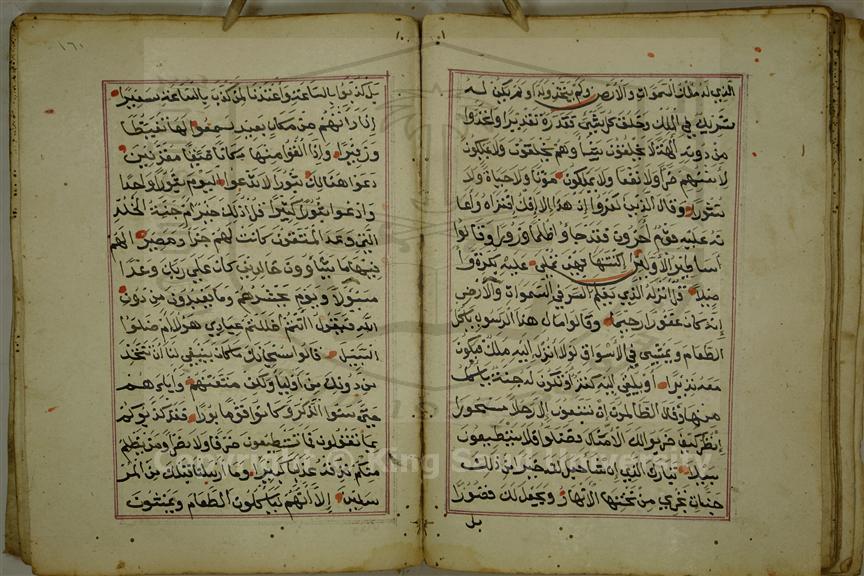 الذي له ملك السموات والارض ولم يتخذ ولدا ولم يكن له
شريك في الملك وخلق كل شيء فقدره تقديرا واتخذوا
من دونه الهة لا يخلقون شيئا وهم يخلقون ولا يملكون
لانفسهم ضرا ولا نفعا ولا يملكون موتا ولا حياة ولا
نشورا وقال الذين كفروا ان هذا الا افك افتراه واعا
نه عليه قوم اخرون فقد جاؤ ظلما وزورا وقالوا
اساطير الاولين اكتتبها فهي تملى عليه بكرة وا
صيلا قل انزله الذي يعلم السر في السموات والارض
انه كان غفورا رحيما وقالوا مال هذا الرسول ياكل
الطعام ويمشي في الاسواق لولا انزل اليه ملك فيكون
معه نذيرا او يلقى اليه كنز او تكون له جنة ياكل
منها وقال الظالمون ان تتبعون الا رجلا مسحورا
انظر كيف ضربوا لك الامثال فضلوا فلا يستطيعون
سبيلا تبارك الذي ان شا جعل لك خيرا من ذلك
جنات تجري من تحتها الانهار ويجعل لك قصورا
بل
١٦١
بل كذبوا بالساعة واعتدنا لمن كذب بالساعة سعيرا
اذا راتهم من مكان بعيد سمعوا لها تغيظا
وزفيرا واذا القوا منها مكانا ضيقا مقرنين
دعوا هنالك ثبورا لا تدعوا اليوم ثبورا واحدا
وادعوا ثبورا كثيرا قل اذلك خير ام جنة الخلد
التي وعد المتقون كانت لهم جزا ومصيرا لهم
فيها ما يشاؤون خالدين كان على ربك وعدا
مسؤلا ويوم يحشرهم وما يعبدون من دون
الله فيقول اانتم اضللتم عبادي هولا ام ضلوا
السبيل قالوا سبحانك ما كان ينبغي لنا ان نتخذ
من دونك من اوليا ولكن متعتهم واباءهم
حتى نسوا الذكر وكانوا قوما بورا فقد كذبوكم
بما تقولون فما تستطيعون صرفا ولا نصرا ومن يظلم
منكم نذقه عذابا كبيرا وما ارسلنا قبلك من المر
سلين الا انهم لياكلون الطعام ويمشون
Copyright © King Saud University